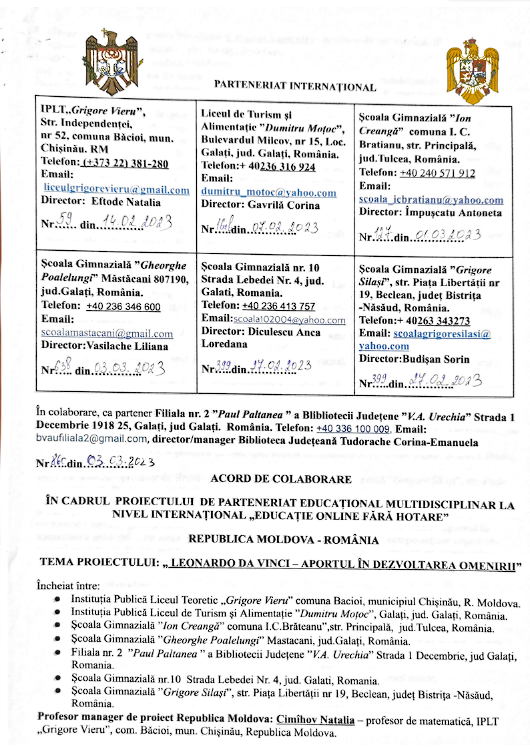 PARTENERIAT INTERNAȚIONAL
IPLT„Grigore Vieru”,
Str. Independenței,
nr 52, comuna Băcioi, mun.
Chișinău. RM
Telefon: (+373 22) 381-280
Email:
liceulgrigorevieru@gmail.com
Director: Eftode Natalia
Nr. 59 din 14.02.2023
Liceul de Turism și
Alimentație "Dumitru Moțoc",
Bulevardul Milcov, nr 15, Loc.
Galați, jud. Galați, România.
Telefon:+ 40236 316 924
Email:
dumitru_motoc@yahoo.com
Director: Gavrilă Corina
Nr. din 07.02.2023
Școala Gimnazială "Ion
Creangă" comuna I. C.
Bratianu, str. Principală,
jud.Tulcea, România.
Telefon: +40 240 571 912
Email:
scoala_icbratianu@yahoo.com
Director: Împuşcatu Antoneta
Nr. 127 din 01.03.2023
Școala Gimnazială "Gheorghe
Poalelungi" Măstăcani 807190,
jud.Galați, România.
Telefon: +40 236 346 600
Email:
scoalamastacani@gmail.com
Director:Vasilache Liliana
Nr. 638 din 03.03.2023
Școala Gimnazială nr. 10
Strada Lebedei Nr. 4, jud.
Galati, Romania.
Telefon: +40 236 413 757
Email:scoala102004@yahoo.com
Director: Diculescu Anca
Loredana
Nr. 399 din 17.02.2023
Școala Gimnazială "Grigore
Silași", str. Piața Libertății nr
19, Beclean, județ Bistrița
-Năsăud, România.
Telefon:+ 40263 343273
Email: scoalagrigoresilasi@
yahoo.com
Director:Budișan Sorin
Nr. 399 din 27.02.2023
În colaborare, ca partener Filiala nr. 2 "Paul Paltanea " a Blibliotecii Județene "V.A. Urechia" Strada 1
Decembrie 1918 25, Galați, jud Galați. România. Telefon: +40 336 100 009, Email:
bvaufiliala2@gmail.com, director/manager Biblioteca Județeană Tudorache Corina-Emanuela
Nr. 260 din 03.03.2023
ACORD DE COLABORARE
ÎN CADRUL PROIECTULUI DE PARTENERIAT EDUCAȚIONAL MULTIDISCIPLINAR LA
NIVEL INTERNAȚIONAL „EDUCAȚIE ONLINE FĂRĂ HOTARE”
REPUBLICA MOLDOVA - ROMÂNIA
TEMA PROIECTULUI: „ LEONARDO DA VINCI – APORTUL ÎN DEZVOLTAREA OMENIRII”
Încheiat între:
● Instituția Publică Liceul Teoretic „Grigore Vieru” comuna Bacioi, municipiul Chișinău, R. Moldova.
● Instituția Publică Liceul de Turism și Alimentație "Dumitru Moțoc", Galați, jud. Galați, România.
● Școala Gimnazială "Ion Creangă" comuna I.C.Brăteanu",str. Principală, jud.Tulcea, România.
● Școala Gimnazială "Gheorghe Poalelungi" Mastacani, jud.Galați, România.
● Filiala nr. 2 "Paul Paltanea " a Bibliotecii Județene "V.A. Urechia" Strada 1 Decembrie, jud Galați,
Romania.
● Școala Gimnazială nr.10 Strada Lebedei Nr. 4, jud. Galati, Romania.
● Școala Gimnazială "Grigore Silași", str. Piața Libertății nr 19, Beclean, județ Bistrița -Năsăud,
România.
Profesor manager de proiect Republica Moldova: Cimihov Natalia – profesor de matematică, IPLT
„Grigore Vieru”, com. Băcioi, mun. Chișinău, Republica Moldova.